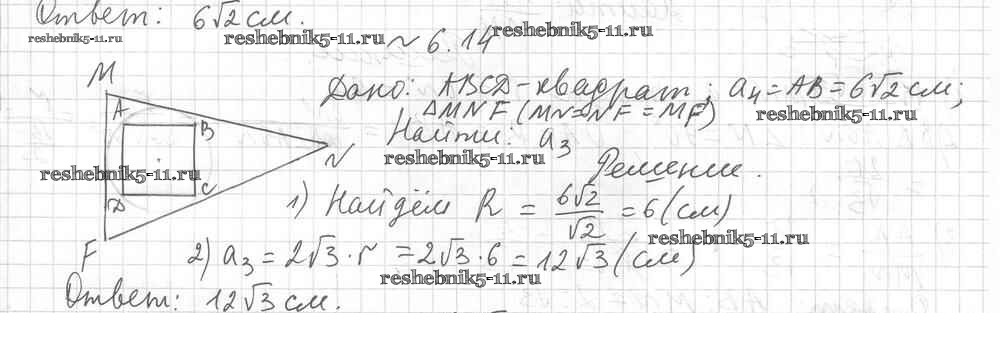 Ответ: 6√2 см.
reshebnik5-11.ru reshebnik5-11.ru ~ 6.14 reshebnik5-11.ru
M
A B
N
D C
F
reshebnik5-11.ru
Дано: ABCD-квадрат; a₄ = AB = 6√2 см;
reshebnik5-11.ru
ΔMNF (MN = NF = MF)
Найти: a₃
reshebnik5-11.ru
Решение.
1) Найдём R = 6√2/√2 = 6 (см)
reshebnik5-11.ru
2) a₃ = 2√3 · r = 2√3 · 6 = 12√3 (см)
reshebnik5-11.ru
Ответ: 12√3 см.